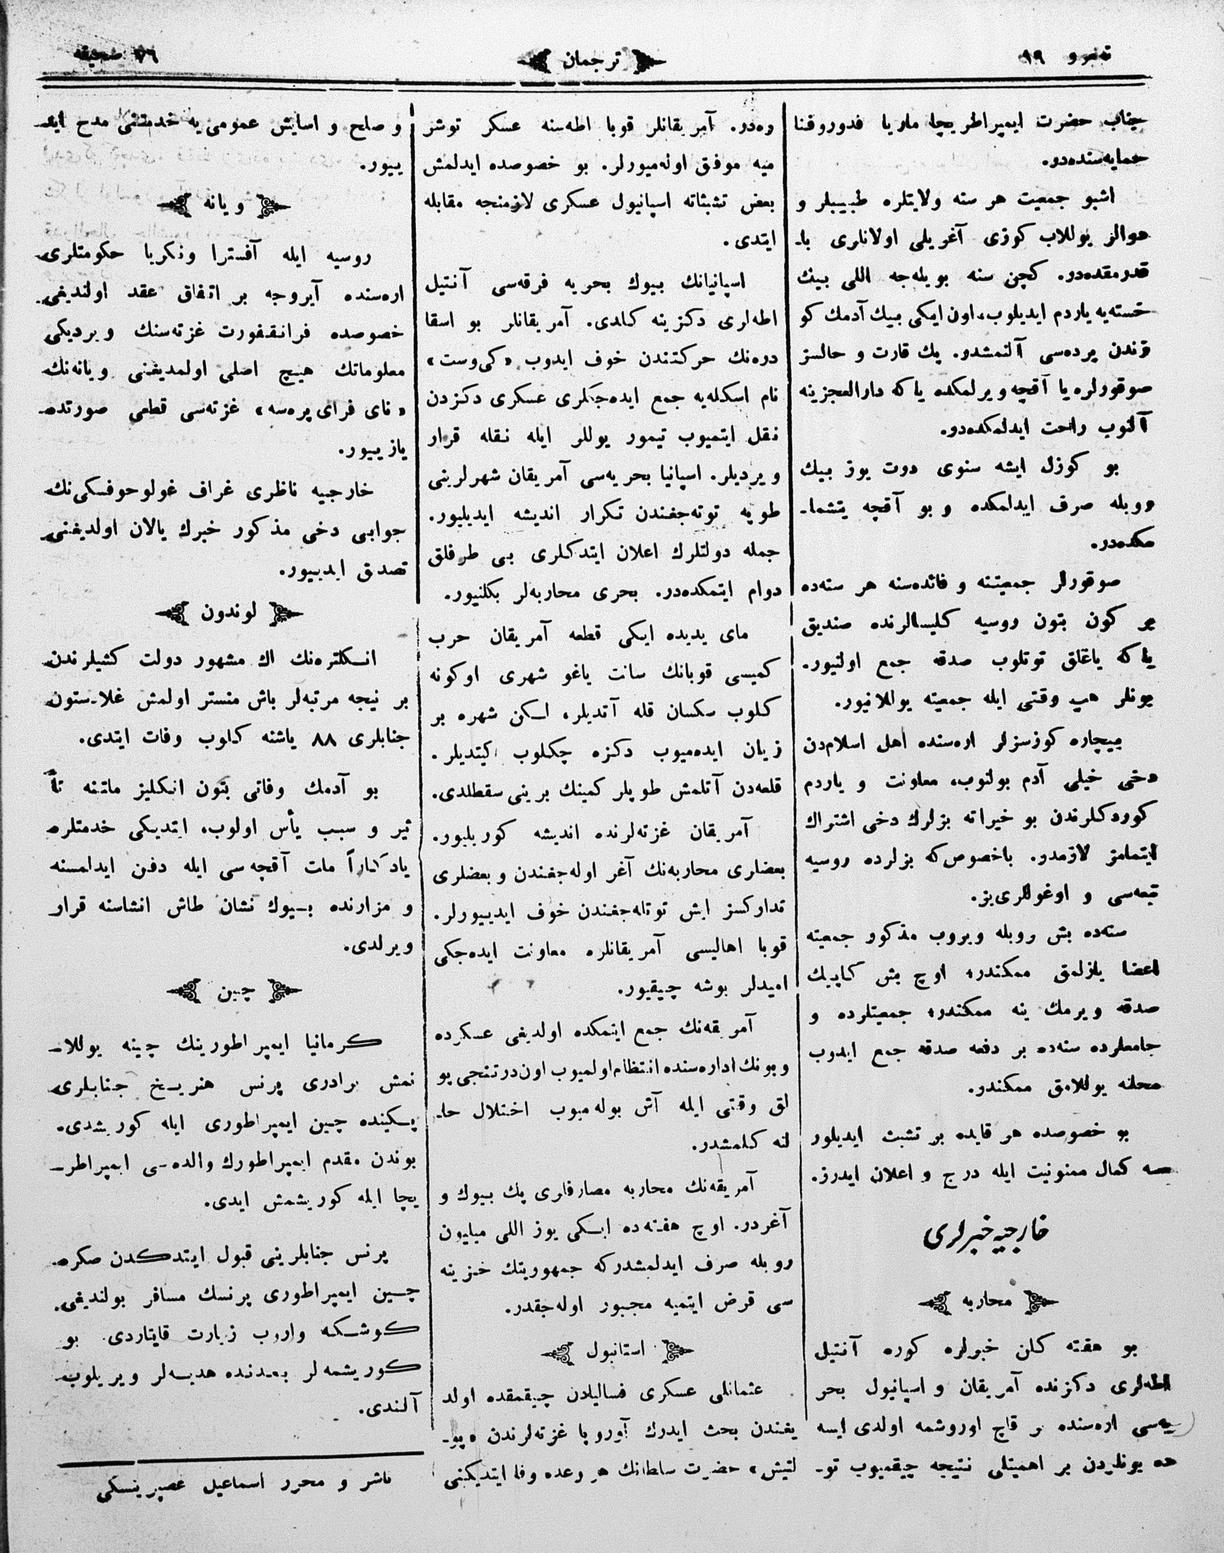 نمبرو ١٩
ترجمان
٧٦ صحيفه
جناب حضرت ايمپراطريچا ماريا فدوروقنا
حمايه‌سنده‌در.
اشبو جمعيت هر سنه ولايتلره طبيبلر و
دوالر يوللاب كوزى آغريلى اولانلرى باـ
قدرمقده‌در. كچن سنه بويله‌جه اللى بيك
خسته‌يه ياردم ايديلوب، اون ايكى بيك آدمك كو
زندن پرده‌سى آلنمشدر. پك قارت و حالسز
صوقورلره يا آقچه ويرلمكده ياكه دارالعجزينه
آلنوب راحت ايدلمكده‌در.
بو كوزل ايشه سنوى دورت يوز بيك
روبله صرف ايدلمكده و بو آقچه يتشماـ
مكده‌در.
صوقورلر جمعيتنه و فائده‌سنه هر سنه‌ده
بر كون بتون روسيه كليسالرنده صنديق
ياكه ياغلق توتلوب صدقه جمع اولنيور.
بونلر هپ وقتى ايله جمعيته يوللانيور.
بيچاره كوزسزلر اره‌سنده اهل اسلام‌دن
دخى خيلى آدم بولنوب، معاونت و ياردم
كوردكلرندن بو خيراته بزلرك دخى اشتراك
ايتمامز لازمدر. باخصوص‌كه بزلرده روسيه
تبعه‌سى و اوغوللرى‌يز.
سنه‌ده بش روبله ويروب مذكور جمعيته
اعضا يازلمق ممكندر؛ اوچ بش كاپيك
صدقه ويرمك ينه ممكندر؛ جمعيتلرده و
جامعلرده سنه‌ده بر دفعه صدقه جمع ايدوب
محلنه يوللامق ممكندر.
بو خصوصده هر قايده بر تشبث ايديلور
سه كمال ممنونيت ايله درج و اعلان ايدرز.
خارجيه خبرلرى
محاربه
بو هفته كلن خبرلره كوره آنتيل
اطه‌لرى دكزنده آمريقان و اسپانيول بحر
يه‌سى اره‌سنده بر قاچ اوروشمه اولدى ايسه
ده بونلردن بر اهميتلى نتيجه چيقميوب توـ
ره‌در. آمريقانلر قوبا اطه‌سنه عسكر توشر
ميه موفق اوله‌ميورلر. بو خصوصده ايدلمش
بعض تشبثاته اسپانيول عسكرى لازمنجه مقابله
ايتدى.
اسپانيانك بيوك بحريه فرقه‌سى آنتيل
اطه‌لرى دكزينه كلدى. آمريقانلر بو اسقا
دره‌نك حركتندن خوف ايدوب «كى‌وست»
نام اسكله‌يه جمع ايده‌جكلرى عسكرى دكزدن
نقل ايتميوب تيمور يوللر ايله نقله قرار
ويرديلر. اسپانيا بحريه‌سى آمريقان شهرلرينى
طوپه توته‌جغندن تكرار انديشه ايديليور.
جمله دولتلرك اعلان ايتدكلرى بى طرفلق
دوام ايتمكده‌در. بحرى محاربه‌لر بكلنيور.
ماى يديده ايكى قطعه آمريقان حرب
كميسى قوبانك سانت ياغو شهرى اوكونه
كلوب سكسان قله آتديلر، لسكن شهره بر
زيان ايده‌ميوب دكزه چكلوب كيتديلر.
قلعه‌دن آتلمش طوپلر كمينك برينى سقطلدى.
آمريقان غزته‌لرنده انديشه كوريليور.
بعضلرى محاربه‌نك آغر اوله‌جغندن و بعضلرى
تداركسز ايش توتله‌جغندن خوف ايدييورلر.
قوبا اهاليسى آمريقانلره معاونت ايده‌جكى
اميدلر بوشه چيقيور.
آمريقه‌نك جمع ايتمكده اولديغى عسكرده
و بونك اداره‌سنده انتظام اولميوب اون‌درتنجى يو
لق وقتى ايله آش بوله‌ميوب اختلال حاـ
لنه كلمشدر.
آمريقه‌نك محاربه مصارفلرى پك بيوك و
آغردر. اوچ هفته‌ده ايكى يوز اللى ميليون
روبله صرف ايدلمشدركه جمهوريتك خزينه
سى قرض ايتميه مجبور اوله‌جقدر.
استانبول
عثمانلى عسكرى فساليادن چيقمقده اولد
يغندن بحث ايدرك آوروپا غزته‌لرندن «پوـ
لتيش» حضرت سلطانك هر وعده وفا ايتديكنى
و صلح و اسايش عموميه‌يه خدمتنى مدح ايد
ييور.
ويانه
روسيه ايله آفسترا ونكريا حكومتلرى
اره‌سنده آيروجه بر اتفاق عقد اولنديغى
خصوصده فرانقفورت غزته‌سنك ويرديكى
معلوماتك هيچ اصلى اولمديغنى ويانه‌نك
«ناى فراى پره‌سه» غزته‌سى قطعى صورتده
يازييور.
خارجيه ناظرى غراف غولوحوفسكى‌نك
جوابى دخى مذكور خبرك يالان اولديغنى
تصديق ايدييور.
لوندون
انسكلتره‌نك اك مشهور دولت كشيلرندن
بر نيجه مرتبه‌لر باش منستر اولمش غلادستون
جنابلرى ٨٨ ياشنه كلوب وفات ايتدى.
بو آدمك وفاتى بتون انكليز ملتنه تأ
ثير و سبب يأس اولوب، ايتديكى خدمتلره
يادكاراً ملت آقچه‌سى ايله دفن ايدلمسنه
و مزارنده بيوك نشان طاش انشاسنه قرار
ويرلدى.
چين
كرمانيا ايمپراطورينك چينه يوللاـ
نمش برادرى پرنس هنريخ جنابلرى
پكينده چين ايمپراطورى ايله كورشدى.
بوندن مقدم ايمپراطورك والده‌سى ايمپراطرـ
يچا ايله كوريشمش ايدى.
پرنس جنابلرينى قبول ايتدكدن صكره
چين ايمپراطورى پرنسك مسافر بولنديغى
كوشكه واروب زيارت قايتاردى. بو
كوريشمه‌لر بعدنده هديه‌لر ويريلوب
آلندى.
ناشر و محرر اسماعيل غصپرينسكى